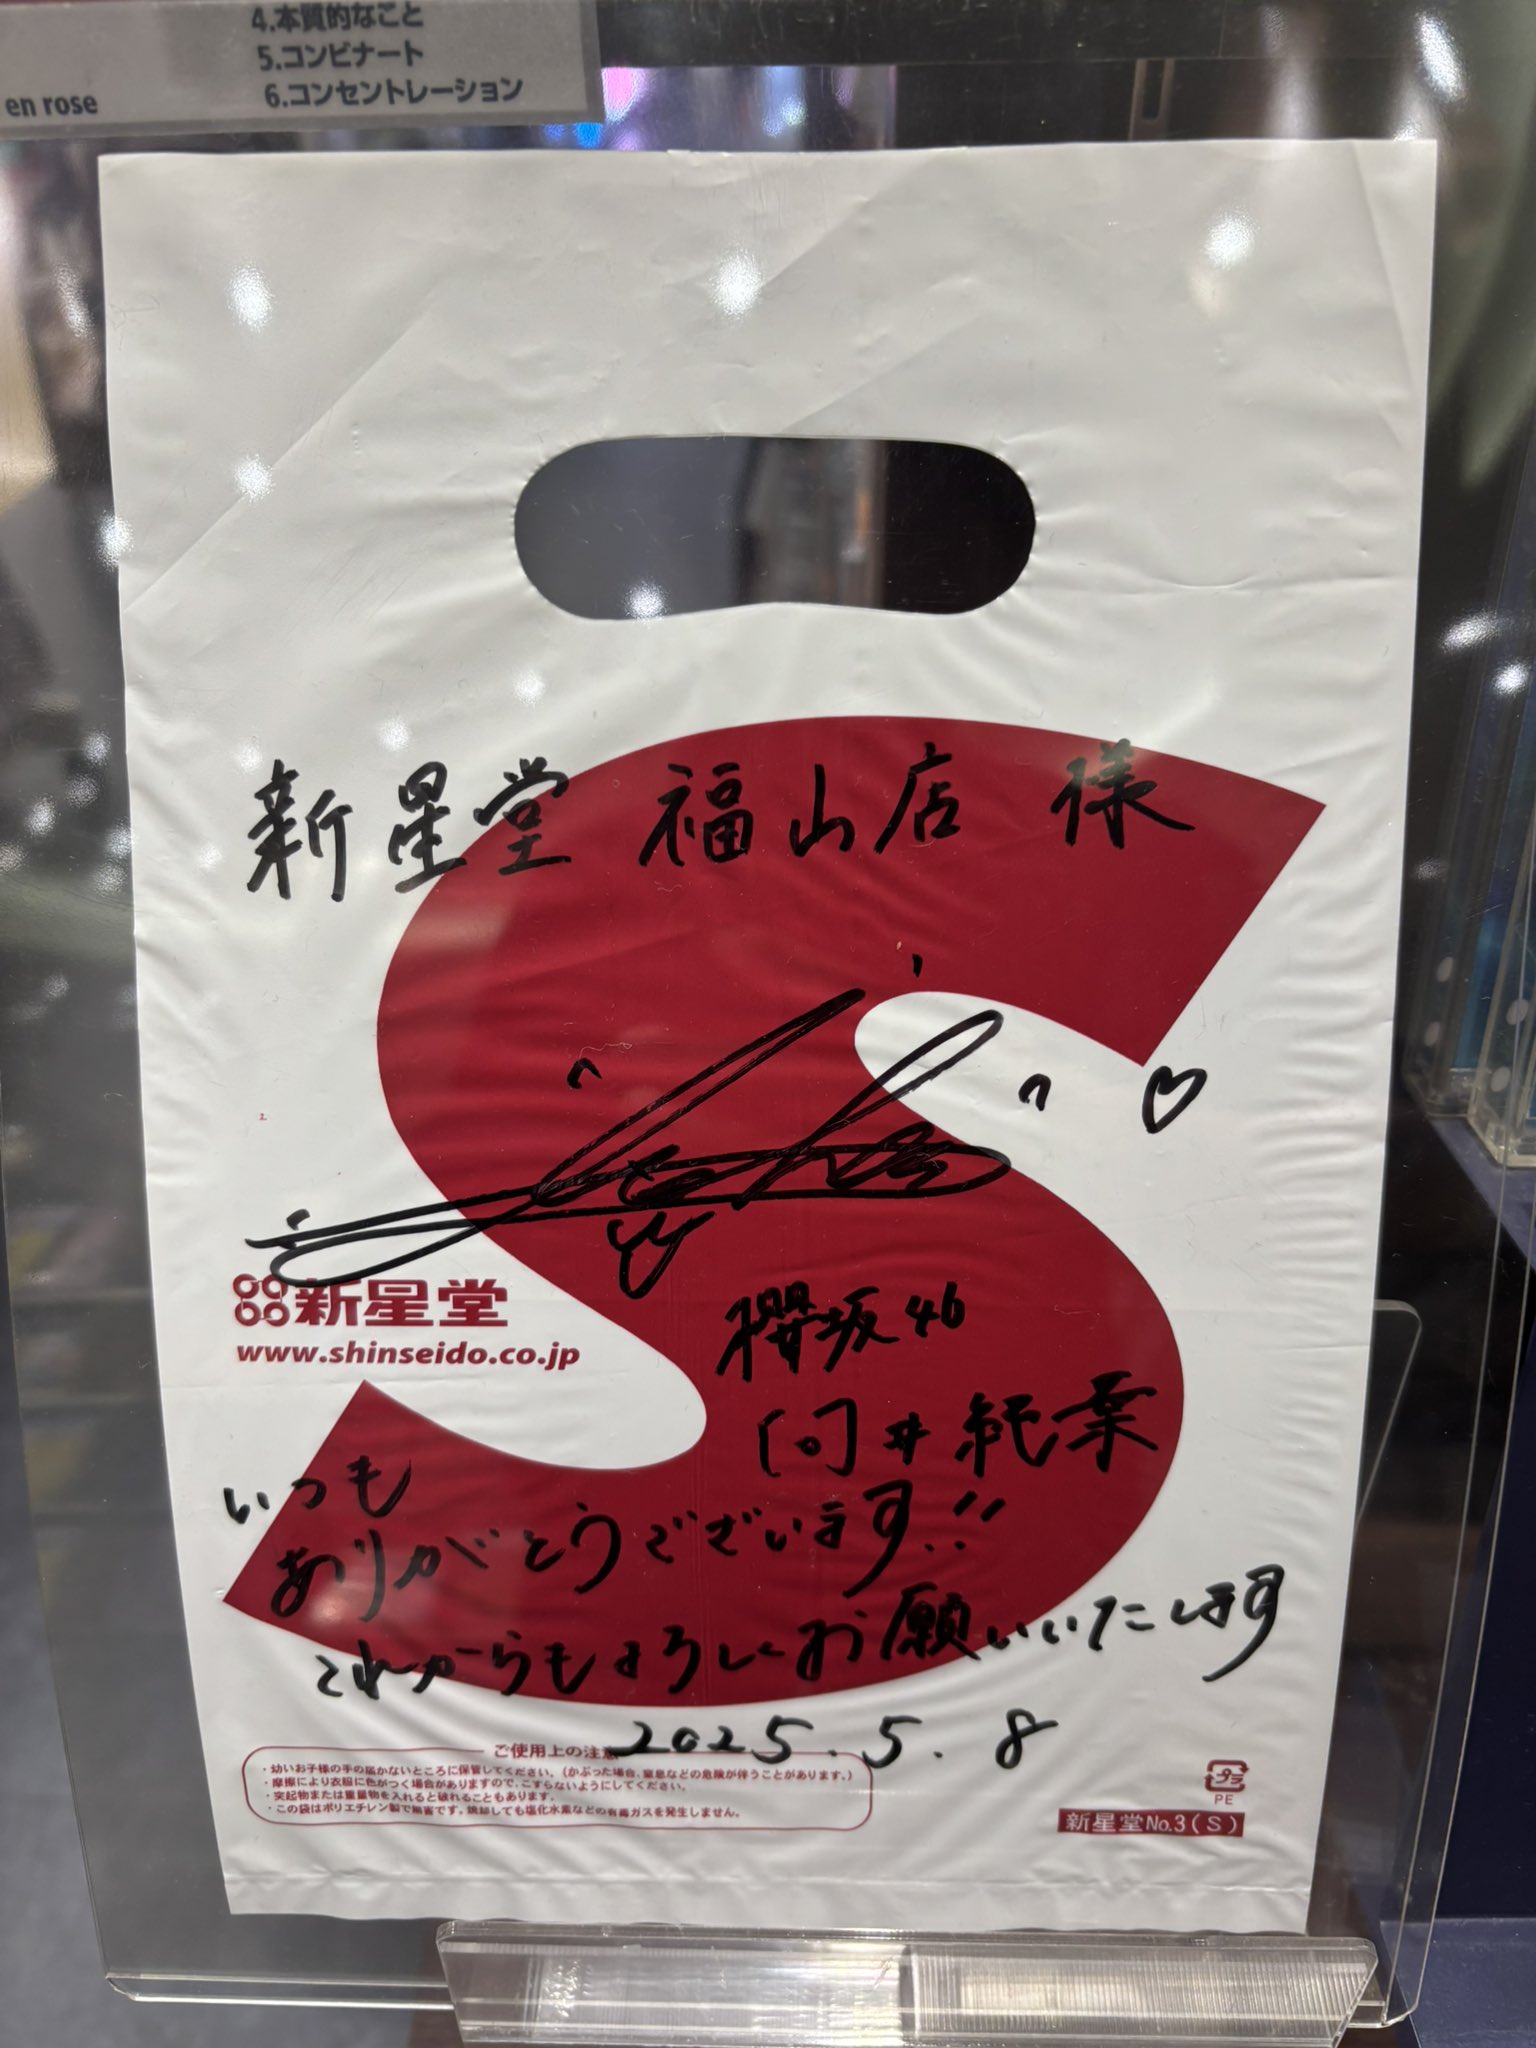 4.本質的なこと
5.コンビナート
en rose
6.コンセントレーション
新星堂 福山店 様
新星堂
www.shinseido.co.jp
櫻坂46
向井純葉
いつも
ありがとうございます!!
これからもよろしくお願いいたします
2025.5.8
ご使用上の注意
・幼いお子様の手の届かないところに保管してください。(かぶった場合、窒息などの危険が伴うことがあります。)
・摩擦により衣服に色がつく場合がありますので、こすらないようにしてください。
・突起物または重量物を入れると破れることもあります。
・この袋はポリエチレン製で無害です。焼却しても塩化水素などの有毒ガスを発生しません。
プラ
PE
新星堂No.3(S)